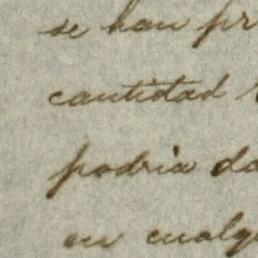 se han pr
cantidad
podria da
en cualq